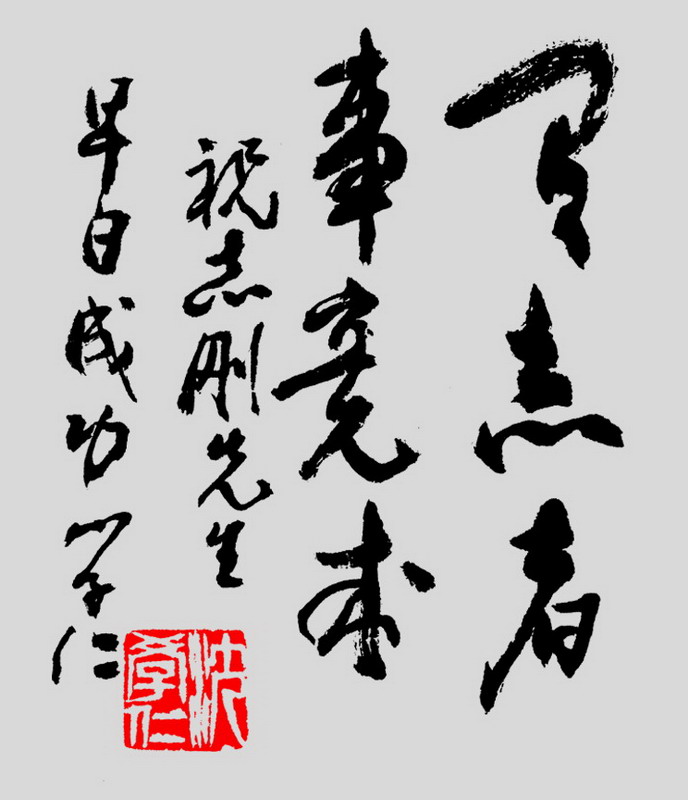 有志者
事竟成
祝志刚先生
早日成功 学仁
沈
學仁